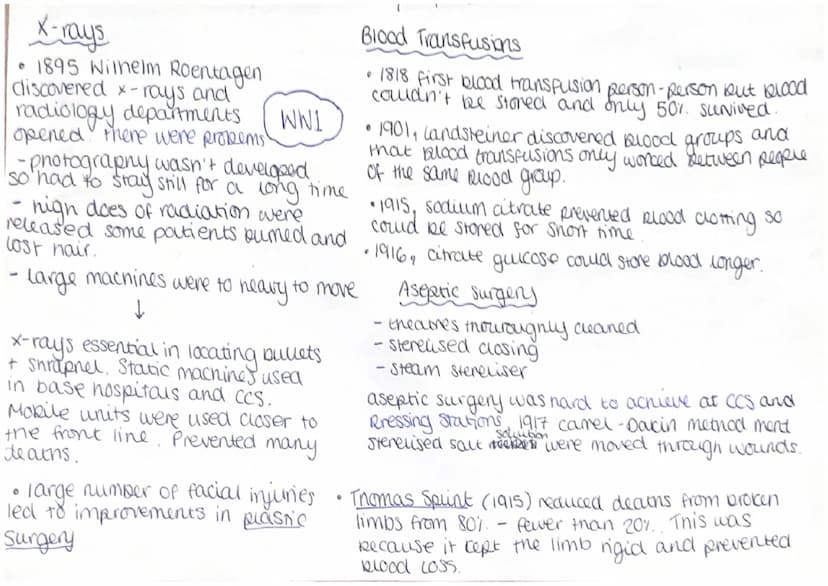 X-rays
• 1895 Wilhelm Roentagen
discovered x-rays and
radiology departments
opened. there were problems
-photography wasn't developed
so had to stay still for a long time
- high does of radiation were
released some patients burned and
lost hair.
- large machines were to heavy to move
↓
x-rays essential in locating bullets
+ shrapnel. Static machines used
in base hospitals and CCS.
Mobile units were used closer to
the front line. Prevented many
deaths.
• large number of facial injuries
led to improvements in plastic
surgery
WW1
Blood Transfusions
• 1818 first blood transfusion person-person but blood
couldn't be stored and only 50% survived.
• 1901, Landsteiner discovered blood groups and
that blood transfusions only worked between people
of the same blood group.
• 1915, sodium citrate prevented blood clotting so
could be stored for short time.
• 1916, citrate glucose could store blood longer.
Aseptic surgery
- theatres thouroughly cleaned
- sterelised closing
- steam stereliser
aseptic surgery was hard to achieve at CCS and
Dressing Stations, 1917 carrel-Dakin method ment
sterelised salt solution were moved through wounds.
• Thomas Splint (1915) reduced deaths from broken
limbs from 80% - fewer than 20%. This was
because it kept the limb rigid and prevented
blood loss.